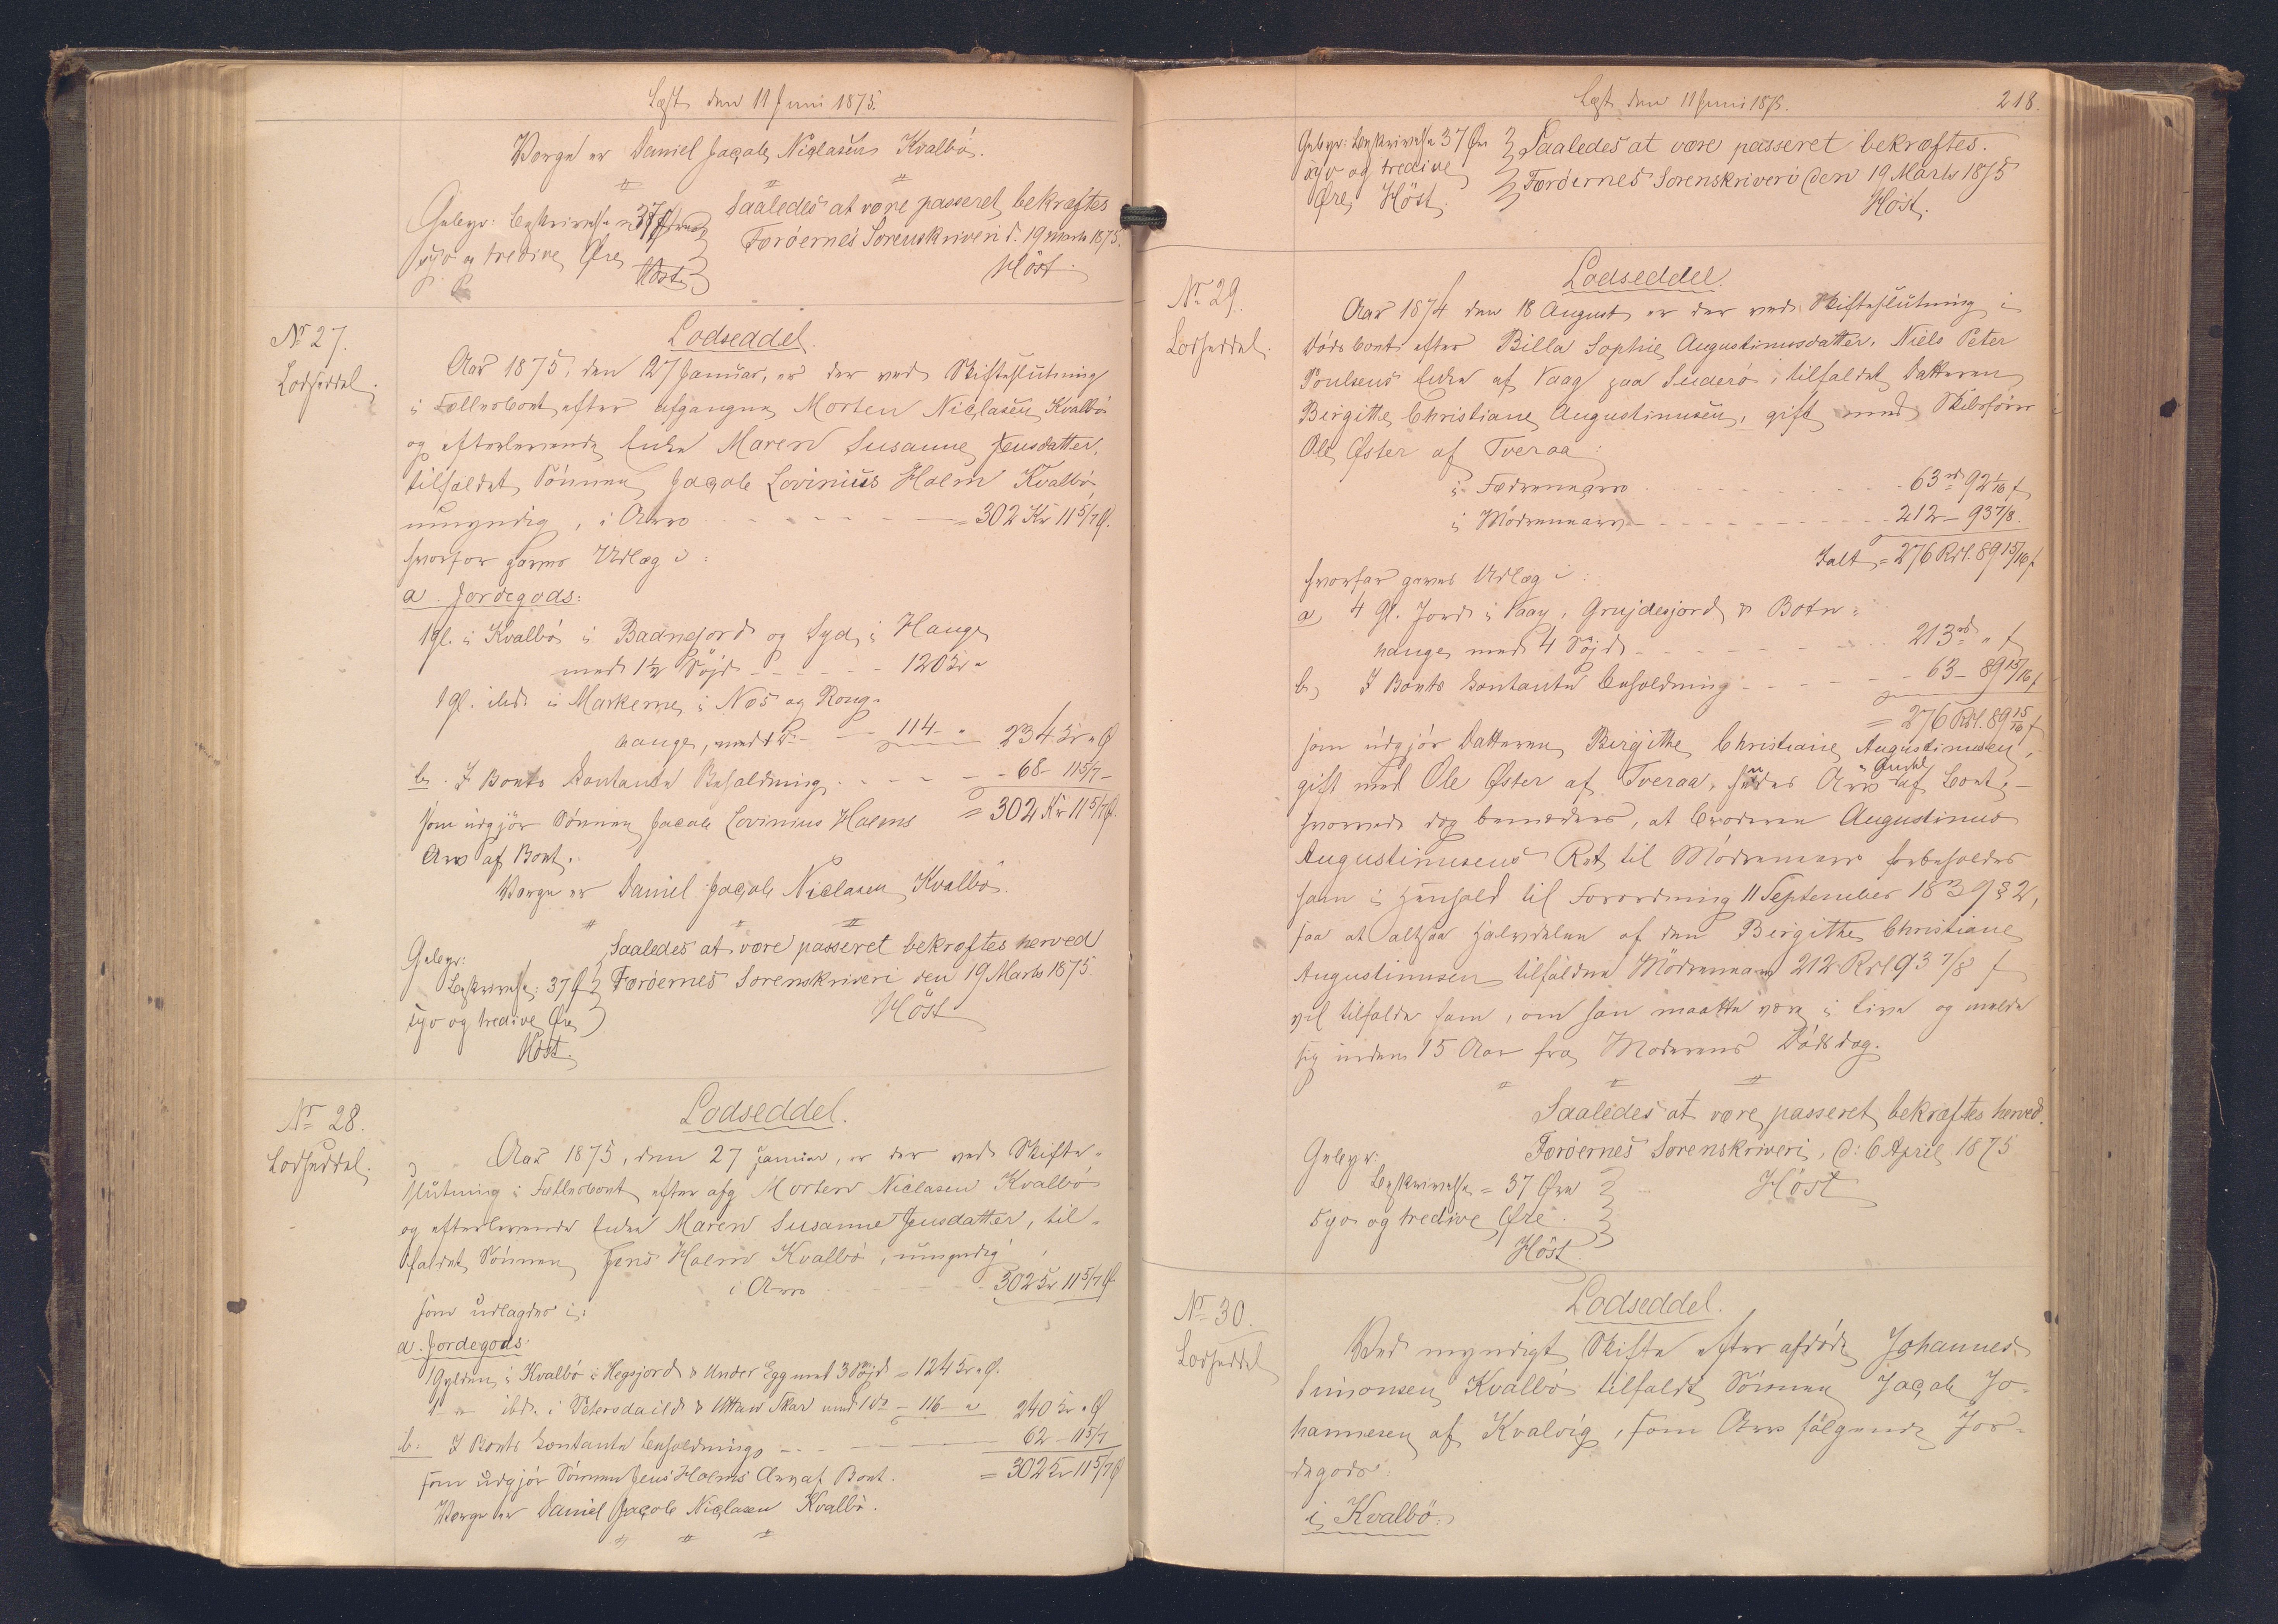 Læst den 11 Juni 1875.
Værge er Daniel Jacob Niclasen Kvalbö.
Saaledes at være passeret bekræftes
Gebyr: Beskrivelse 37 Øre
Færöernes Sorenskriveri d. 19 Marts 1875.
syv og tredive Øre
Höst
Höst
Nr 27.
Lodseddel.
Lodseddel.
Aar 1875, den 27 Januar, er der ved Skifteslutning
i Fællesboet efter afgangne Morten Niclasen Kvalbö
og efterlevende Enke Maren Susanne Jensdatter,
tilfaldet Sönnen Jacob Lovinius Holm Kvalbö,
umyndig, i Arv - - - = 302 Kr 11 5/7 Ø.
hvorfor gaves Udlæg i:
a. Jordegods:
1 gl. i Kvalbö i Badnejord og Syd i Hauge
med 1 1/2 Söjd - - - 120 Kr "
1 gl. ibd. i Markerne i Næs og Rong-
hauge, med 1 Do - - 114 - " 234 Kr " Ø
b. I Boets kontante Beholdning - - - 68 - 11 5/7 -
= 302 Kr 11 5/7 Ø.
som udgjör Sönnen Jacob Lovinius Holms
Arv af Boet.
Værge er Daniel Jacob Niclasen Kvalbö.
Saaledes at være passeret bekræftes herved
Gebyr:
Beskrivelse: 37 Ø
Færöernes Sorenskriveri den 19 Marts 1875.
syv og tredive Øre
Höst
Höst.
Nr 28.
Lodseddel.
Lodseddel.
Aar 1875, den 27 Januar, er der ved Skifte-
slutning i Fællesboet efter afg Morten Niclasen Kvalbö
og efterlevende Enke Maren Susanne Jensdatter, til-
faldet Sönnen Jens Holm Kvalbö, umyndig
i Arv - - - 302 Kr. 11 5/7 Ø
som udlagdes i:
a. Jordegods:
1 Gylden i Kvalbö i Hegsjord & Under Egg med 3 Söjd = 124 Kr " Ø.
1 - " ibd. i Petersdaild & Uttan Skar med 1 Do - 116 - " 240 Kr " Ø
b. I Boets kontante Beholdning - - - 62 - 11 5/7
= 302 Kr 11 5/7 Ø
som udgjör Sönnen Jens Holms Arv af Boet.
Værge er Daniel Jacob Niclasen Kvalbö.
Læst den 11 Juni 1875.
218.
Gebyr: Beskrivelse 37 Øre
Saaledes at være passeret bekræftes.
syv og tredive
Færöernes Sorenskriveri den 19 Marts 1875
Øre Höst.
Höst.
Nr 29.
Lodseddel.
Lodseddel.
Aar 1874 den 18 August er der ved Skifteslutning i
Dödsboet efter Billa Sophie Augustinusdatter, Niels Peter
Poulsens Enke af Vaag paa Suderö, tilfaldet Datteren
Birgithe Christiane Augustinusen, gift med Skibsförer
Ole Øster af Tveraa:
i Fædrenearv - - - 63 rd 92 1/16 ß
i Mödrenearv - - - 212 - 93 7/8.
Ialt = 276 Rdl. 89 15/16 ß
hvorfor gaves Udlæg i:
a, 4 Gl. Jord i Vaag, Grujdesjord & Botn-
hauge med 4 Söjd - - - 213 rd " ß
b, I Boets kontante Beholdning - - - 63 - 89 15/16 ß
= 276 Rdl. 89 15/16 ß
som udgjör Datteren Birgithe Christiane Augustinusen,
gift med Ole Øster af Tveraa, hendes Arv af Boet, -
hvorved dog bemærkes, at Broderen Augustinus
Augustinusens Ret til Mödrenearv forbeholdes
ham i Henhold til Forordning 11 September 1839 § 2,
saa at altsaa Halvdelen af den Birgithe Christiane
Augustinusen tilfaldne Mödrenearv 212 Rdl 93 7/8 ß
vil tilfalde ham, om han maatte være i Live og melde
sig inden 15 Aar fra Moderens Dödsdag.
Saaledes at være passeret bekræftes herved.
Færöernes Sorenskriveri, d: 6 April 1875
Gebyr:
Beskrivelse = 37 Øre
Höst
syv og tredive Øre.
Höst.
Nr 30.
Lodseddel
Lodseddel.
Ved myndigt Skifte efter afdöde Johannes
Simonsen Kvalbö tilfaldt Sönnen Jacob Jo-
hannesen af Kvalvig, som Arv fölgende Jor-
degods
i Kvalbö: